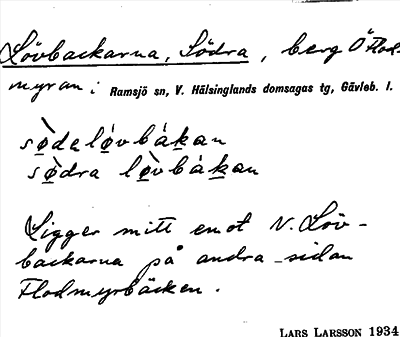 Lövbackarna, Södra, berg Ö Flod-
myran i Ramsjö sn, V. Hälsinglands domsagas tg, Gävleb. l.
sø̀delø̀vbákan
sø̀dra lø̀vbákan
Ligger mitt emot N. Löv-
backarna på andra sidan
Flodmyrbäcken.
LARS LARSSON 1934